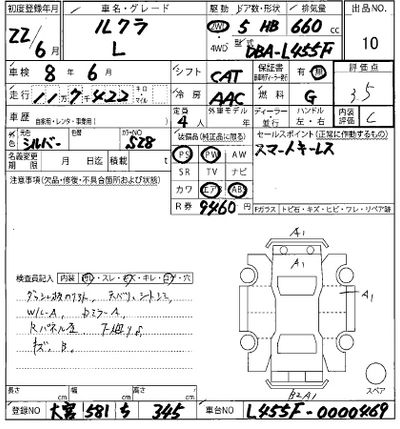 初度登録年月 車名・グレード 駆動 ドア数・形状 排気量 出品NO
22/6月 ルクラ L 2WD 5 HB 660cc 10
4WD 型式 DBA-L455F
車検 8年6月 シフト CAT 保証書 有 無 燃料 評価点
走行 11万7千422 キロ マイル 冷房 AAC G 3.5
車歴 自家用・レンタ・事業用 定員 4人 外車モデル 年 ディーラー 並行 ハンドル 左・右 内装評価 C
色 元色 シルバー 現色 カラーNO S28 装備品(純正品に限る) セールスポイント(正常に作動するもの)
名義変更期限 月 日迄 積載量 t PS PW AW スマートキーレス
注意事項(欠品・修復・不具合箇所および状態) SR TV ナビ
カワ エア AB
R券 9460円 Fガラス トビ石・キズ・ヒビ・ワレ・リペア跡
A1
検査員記入 内装 ・スレ・ ・キレ・ ・穴
A1
W/L-A
キズ、B.
B2A1
スペア
長さ cm 幅 cm 高さ cm
登録NO 大宮 581 ち 345 車台NO L455F-0000469